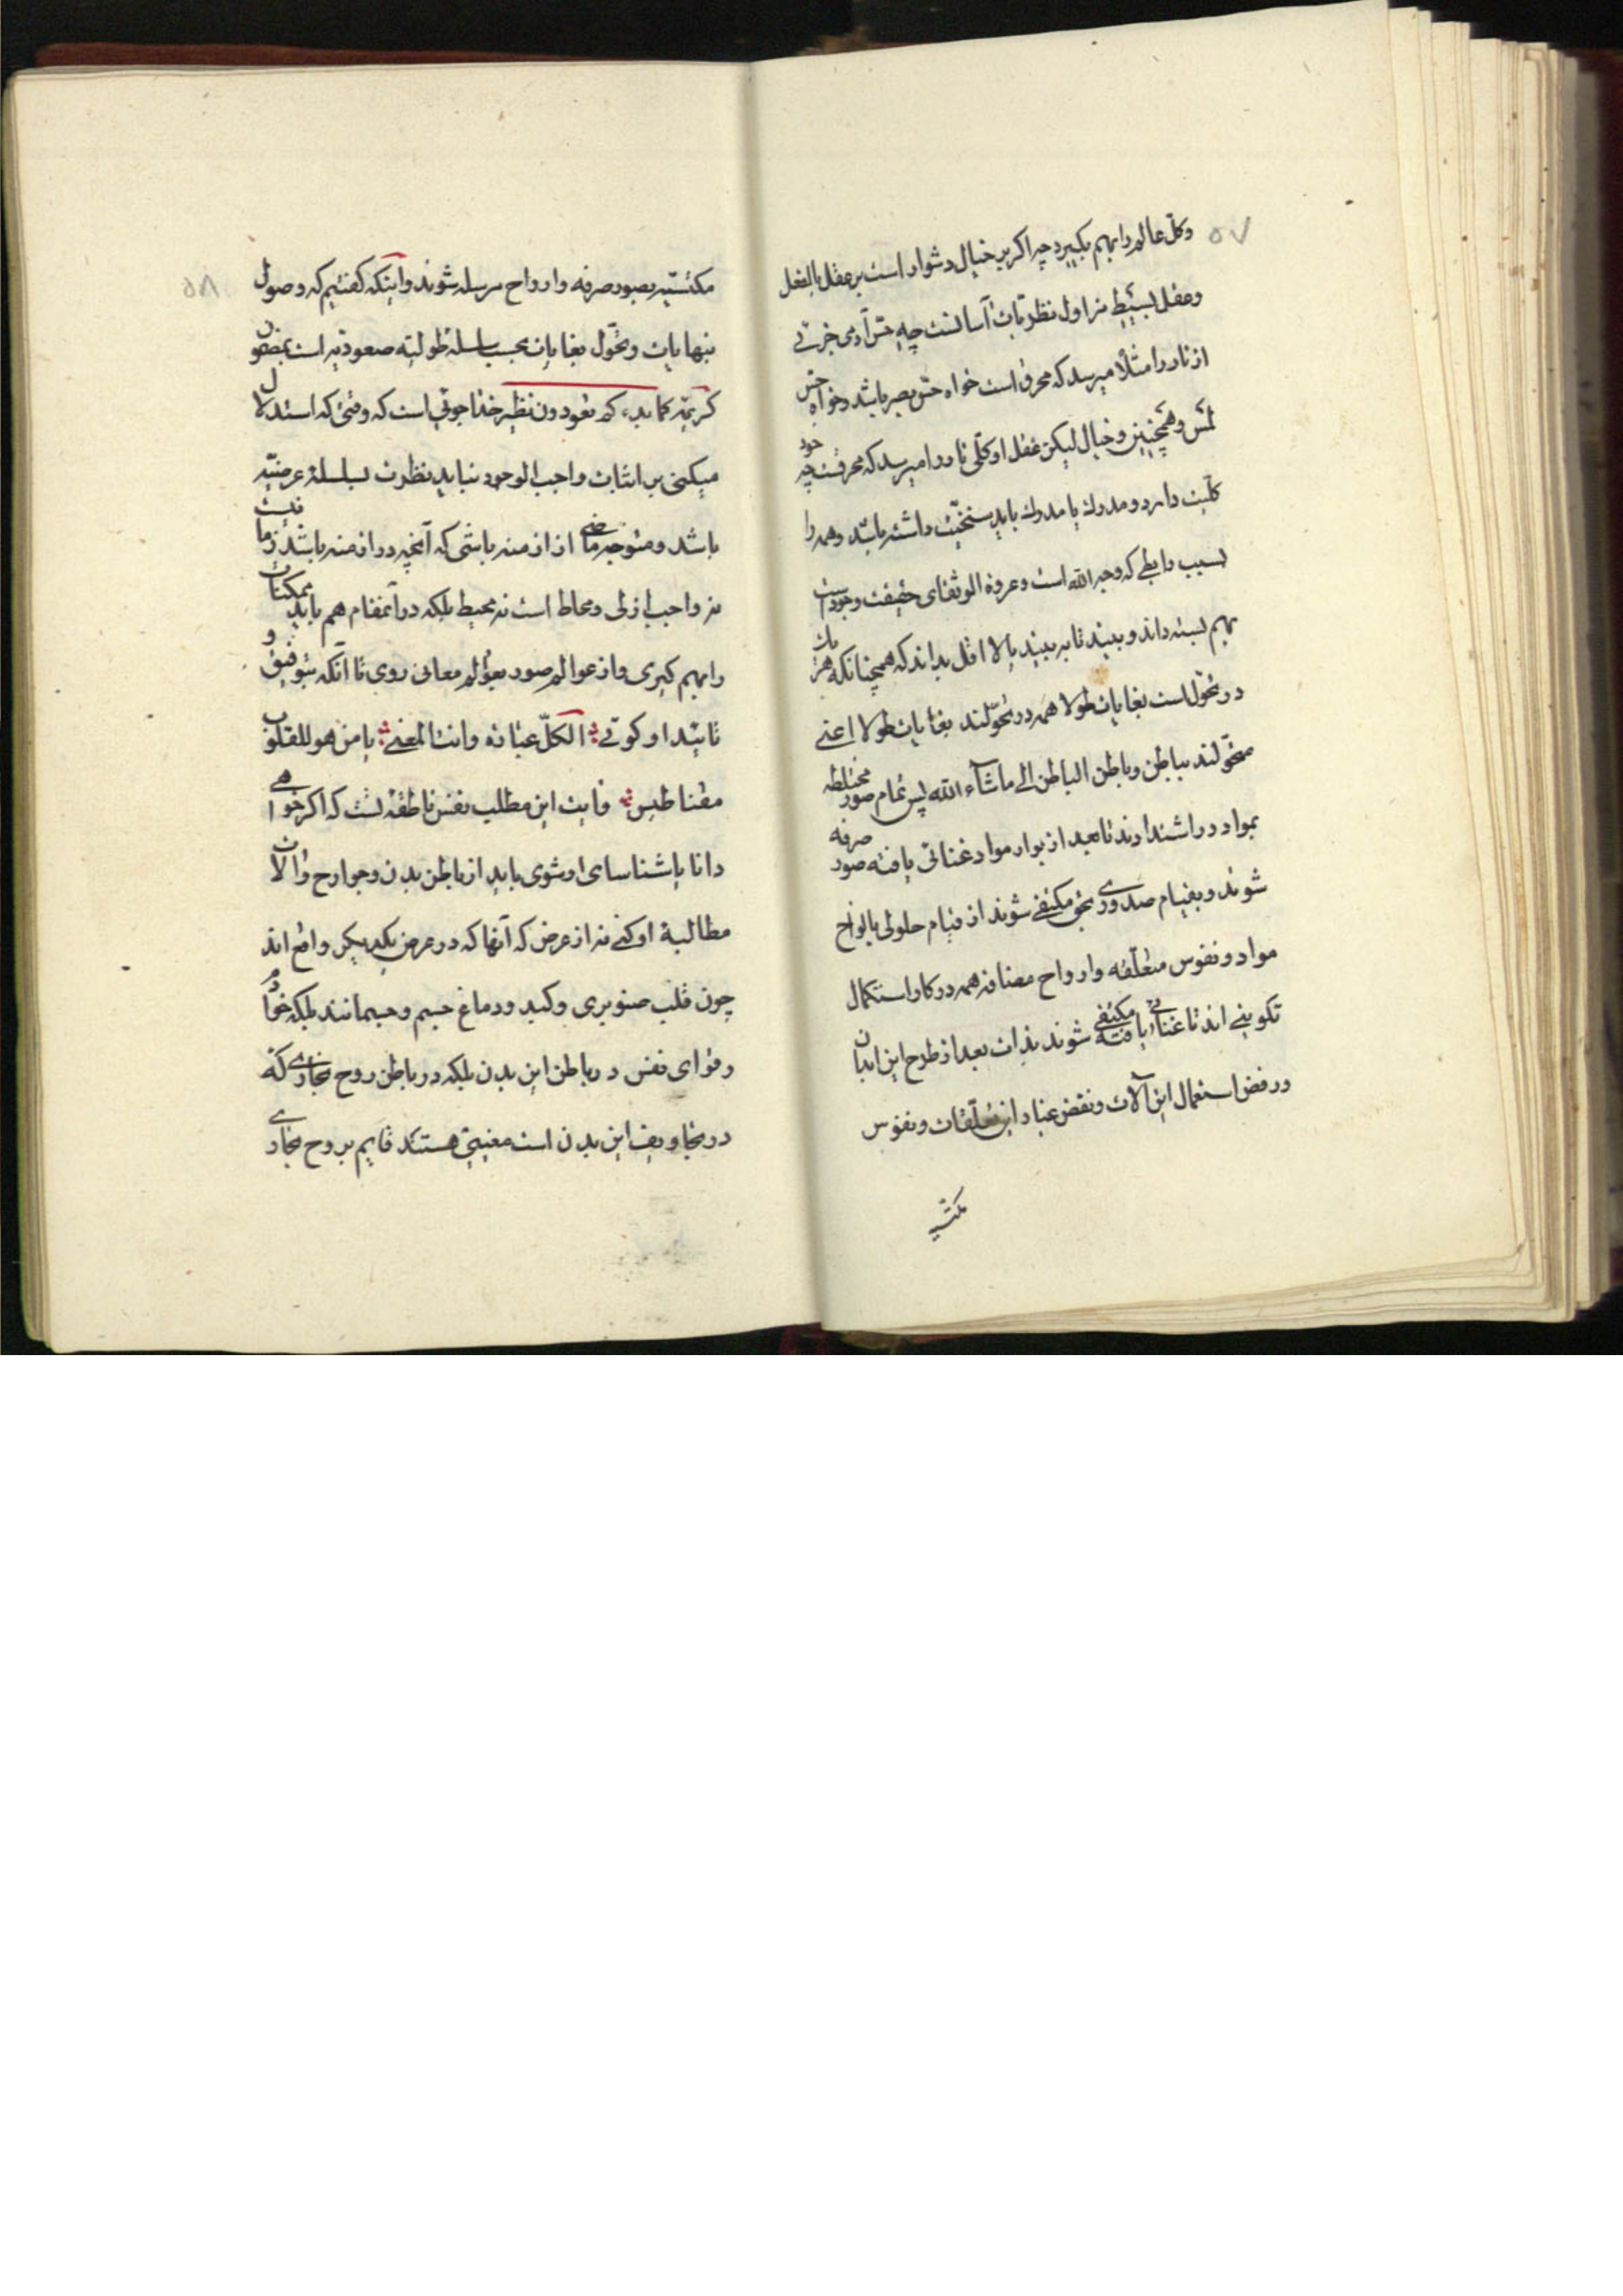 ۵۷
وکل عالم را بهم بگیرد چه اکر بر خیال دشوار است بر عقل بالفعل
و عقل بسیط مزاول نظریات آسانست چه حس آدمی جزئی
از نار را مثلا میرسد که محرق است خواه حس بصر باشد و خواه حس
لمس و همچنین وخیال لیکن عقل او کلی نار را میرسد که محرقست چه خود
کلیت دارد و مدرک با مدرک باید سنخیت داشته باشد و همه را
بسبب رابطی که وجه الله است و عروة الوثقای حقیقت وجود است
بهم بسته داند و بیند تا به بیند بالا اقل بداند که همچنانکه هر یک
در تحول است بغایات طولا همه در تحولند بغایات طولا اعنی
متحولند بباطن و باطن الباطن الی ماشاء الله پس تمام صور مختلطه
بمواد در اشتدادند تا بعد از بوار مواد غنائی یافته صور صرفه
شوند و بقیام صدوری بحق مکتفی شوند از قیام حلولی بالواح
مواد و نفوس متعلقه و ارواح مضافه همه در کار استکمال
تکوینی اند تا غنائی یافته مکتفی شوند بذات بعد از طرح این ابدان
و رفض استعمال این آلات و نقض غبار این تعلقات و نفوس
مکتسیه
۵۸
مکتسیه بصور صرفه و ارواح مرسله شوند و اینکه کفتیم که وصول
بنهایات و تحول بغایات بحسب سلسله طولیه صعودیه است بمضمون
کریمه کما بدءکم تعودون نظیر خداجوئی است که وقتی که استدلال
میکنی بر اثبات واجب الوجود نباید نظرت بسلسله عرضیه
باشد و متوجه ماضی از ازمنه باشی که آنچه در ازمنه باشد زمانیست
نه واجب ازلی و محاط است نه محیط بلکه در آنمقام هم باید ممکنات
را بهم کیری و از عوالم صور بعوالم معانی روی تا آنکه بتوفیق و
تائید او کوئی الکل عبارة وانت المعنی یا من هو للقلوب
مغناطیس و آیت این مطلب نفس ناطقه تست که اکر خواهی
دانا یا شناسای او شوی باید از باطن بدن و جوارح و آلات
مطالبة او کنی نه از عرض که آنها که در عرض یکدیکر واقع اند
چون قلب صنوبری و کبد و دماغ جسم و جسمانند بلکه خود آ
و قوای نفس در باطن این بدن بلکه در باطن روح بخاری که
در تجاویف این بدن است مغیبی هستند قایم بروح بخاری